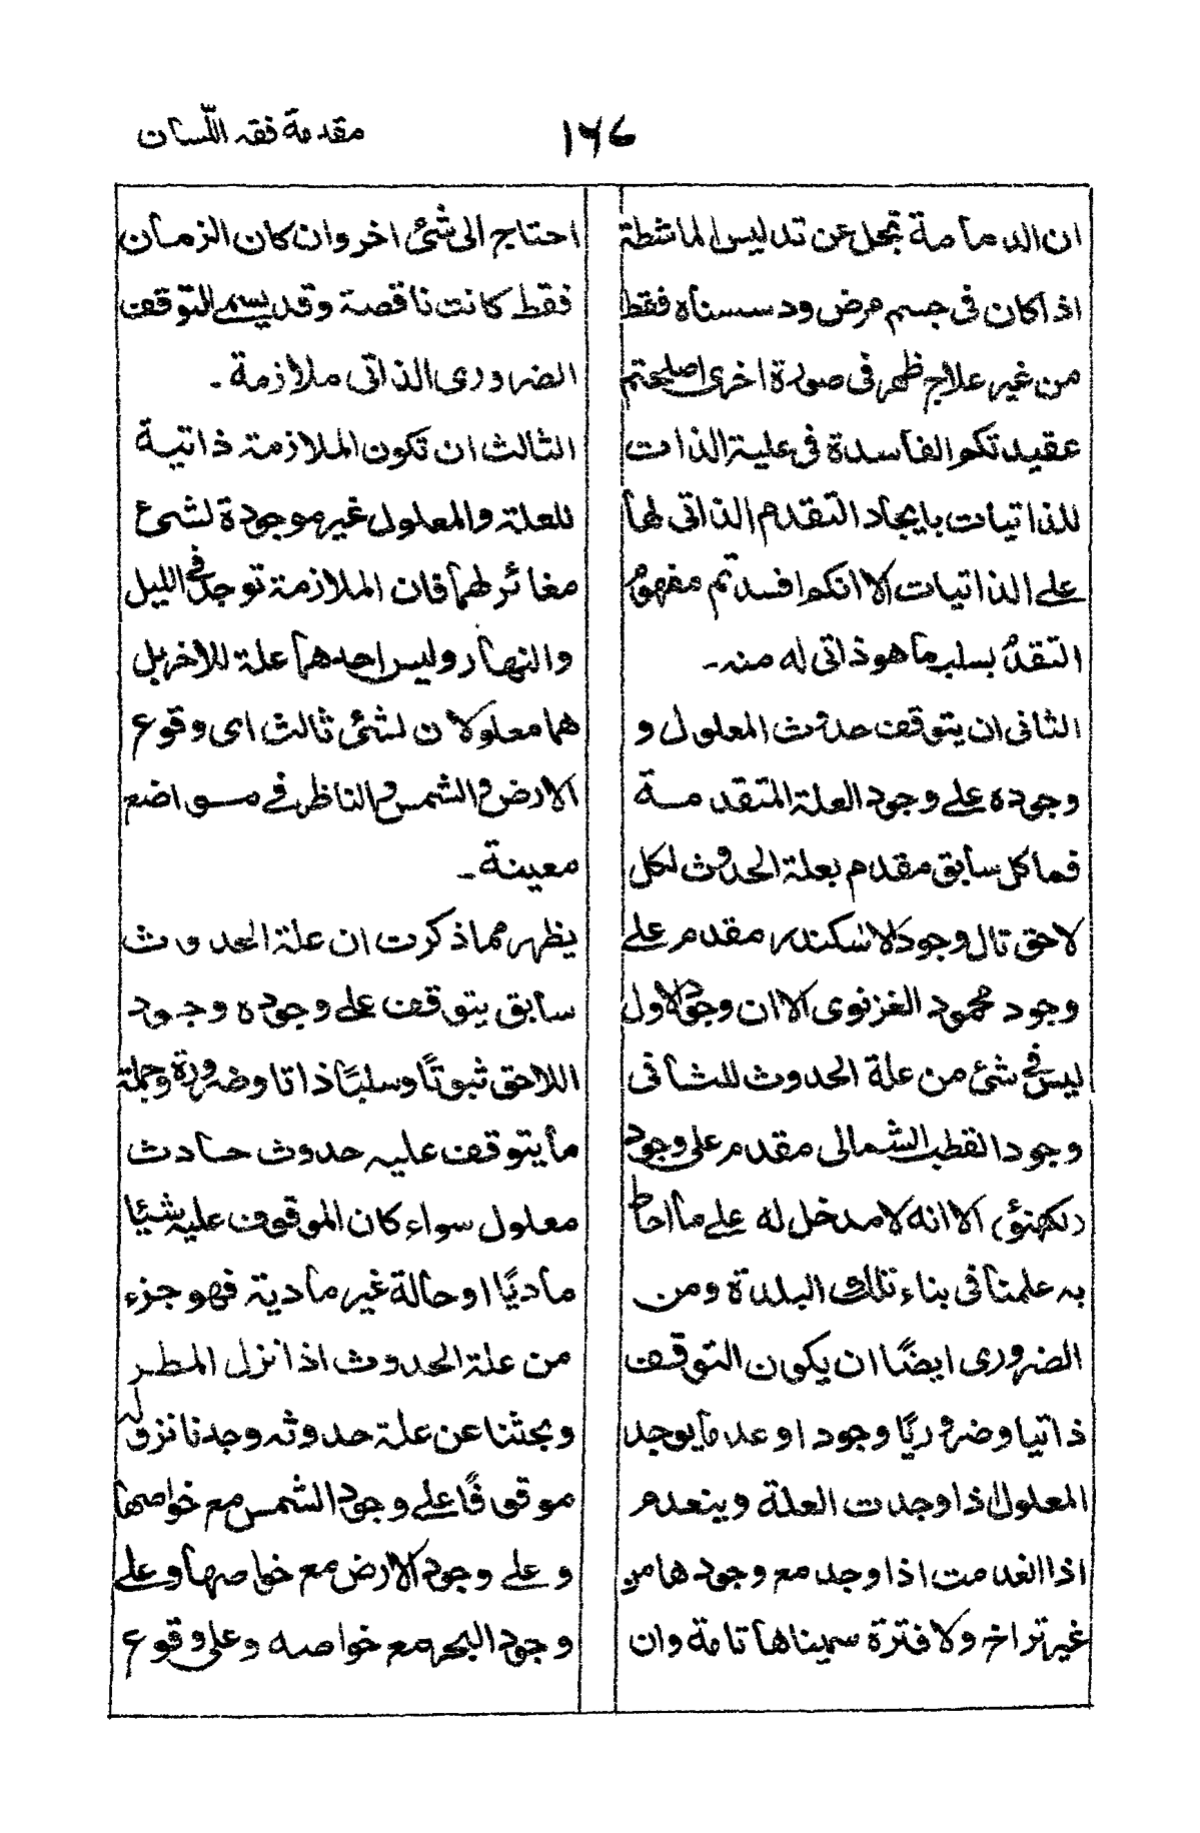 مقدمة فقه اللّسان
١٦٦
ان الدمامة تجل عن تدليس الماشطة
اذا كان فى جسم مرض ودسسناه فقط
من غير علاج ظهر فى صورة اخرى اصلحتم
عقيدتكم الفاسدة فى علية الذات
للذاتيات بايجاد التقدم الذاتى لها
على الذاتيات الا انكم افسدتم مفهوم
التقدم بسلب ما هو ذاتى له منه۔
الثانى ان يتوقف حدوث المعلول و
وجوده على وجود العلة المتقدمة
فما كل سابق مقدم بعلة الحدوث لكل
لاحق تال وجود الاسكندر مقدم على
وجود محمود الغزنوى الا ان وجود الاول
ليس فى شئ من علة الحدوث للثانى
وجود القطب الشمالى مقدم على وجود
لكهنؤ الا انه لا مدخل له على ما احاط
به علمنا فى بناء تلك البلدة ومن
الضرورى ايضًا ان يكون التوقف
ذاتيا وضروريًا وجودا وعدما يوجد
المعلول اذا وجدت العلة وينعدم
اذا انعدمت اذا وجد مع وجودها من
غير تراخ ولا فترة سميناها تامة وان
احتاج الى شئ اخر وان كان الزمان
فقط كانت ناقصة وقد يسمى التوقف
الضرورى الذاتى ملازمة۔
الثالث ان تكون الملازمة ذاتية
للعلة والمعلول غير موجودة لشئ
مغائر لهما فان الملازمة توجد فى الليل
والنهار وليس احدهما علة للاخر بل
هما معلولان لشئ ثالث اى وقوع
الارض والشمس والناظر فى مواضع
معينة۔
يظهر مما ذكرت ان علة الحدوث
سابق يتوقف على وجوده وجود
اللاحق ثبوتًا وسلبًا ذاتا وضرورة وجملة
ما يتوقف عليه حدوث حادث
معلول سواء كان الموقوف عليه شيئا
ماديًا او حالة غير مادية فهو جزء
من علة الحدوث اذا نزل المطر
وبحثنا عن علة حدوثه وجدنا نزوله
موقوفًا على وجود الشمس مع خواصها
وعلى وجود الارض مع خواصها وعلى
وجود البحر مع خواصه وعلى وقوع